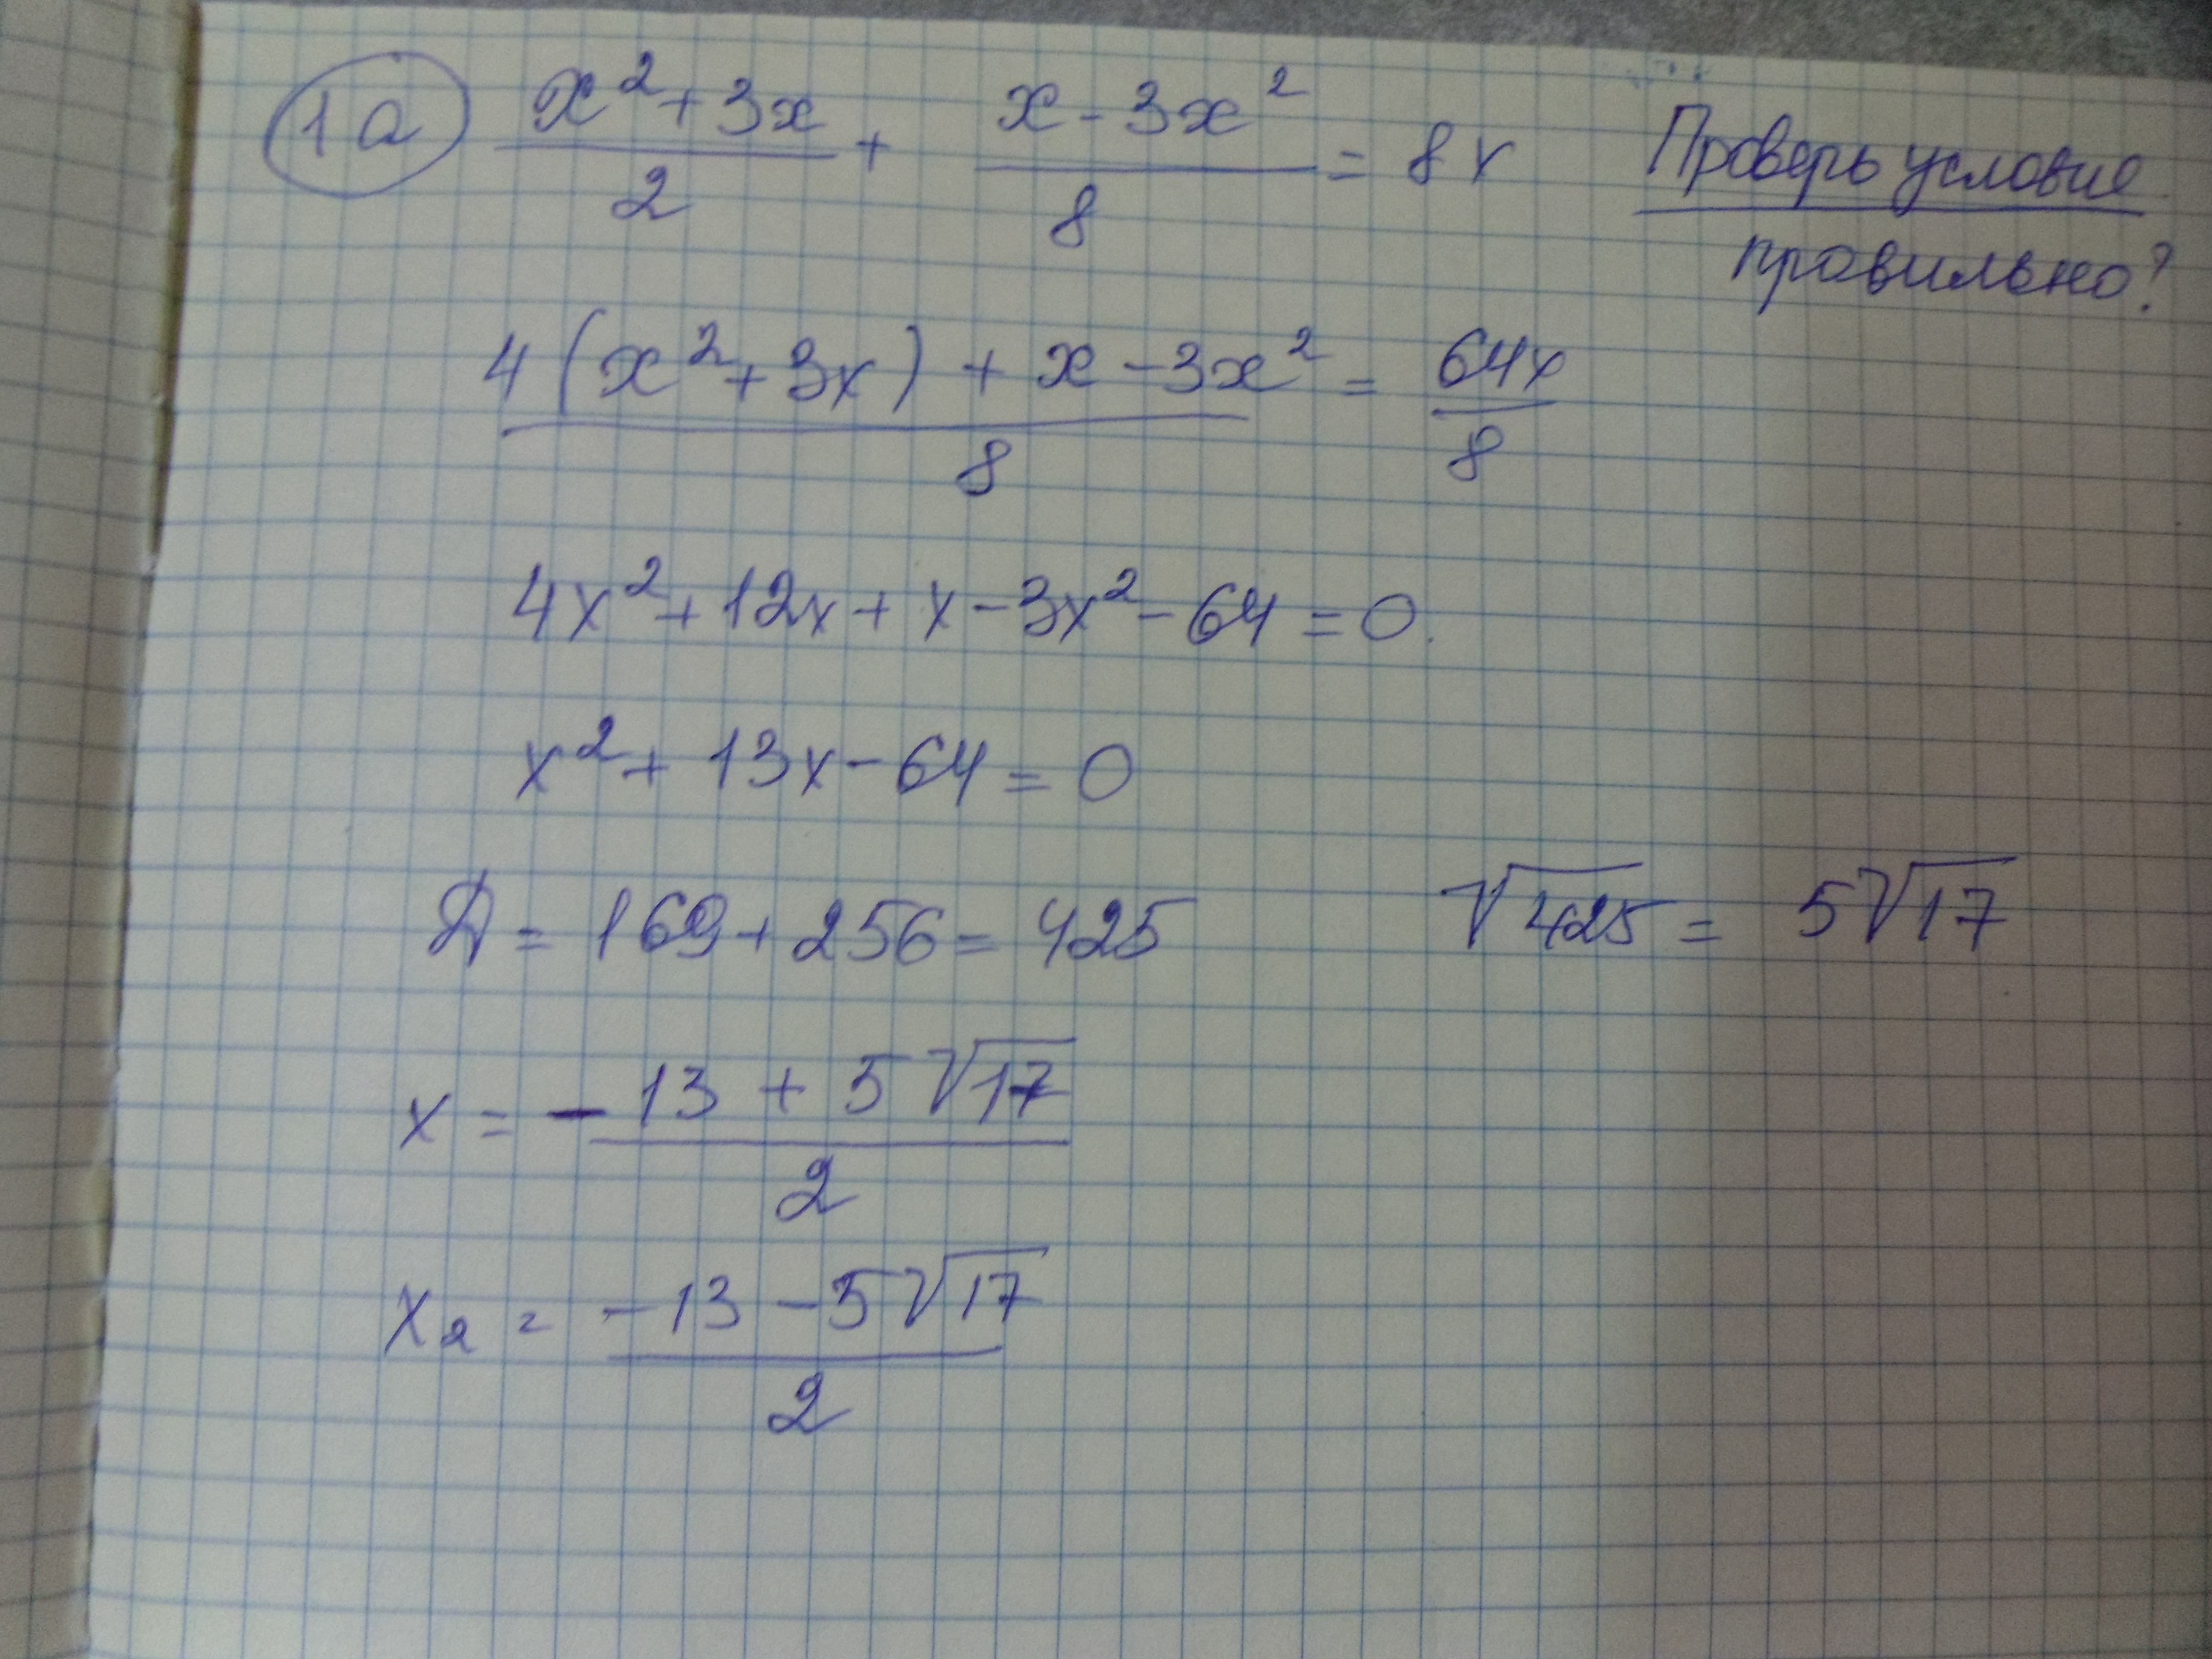 1а) (x² + 3x)/2 + (x - 3x²)/8 = 8x
Проверь условие
правильно?
(4(x² + 3x) + x - 3x²)/8 = 64x/8
4x² + 12x + x - 3x² - 64 = 0.
x² + 13x - 64 = 0
Д = 169 + 256 = 425 √425 = 5√17
x = (-13 + 5√17)/2
x₂ = (-13 - 5√17)/2